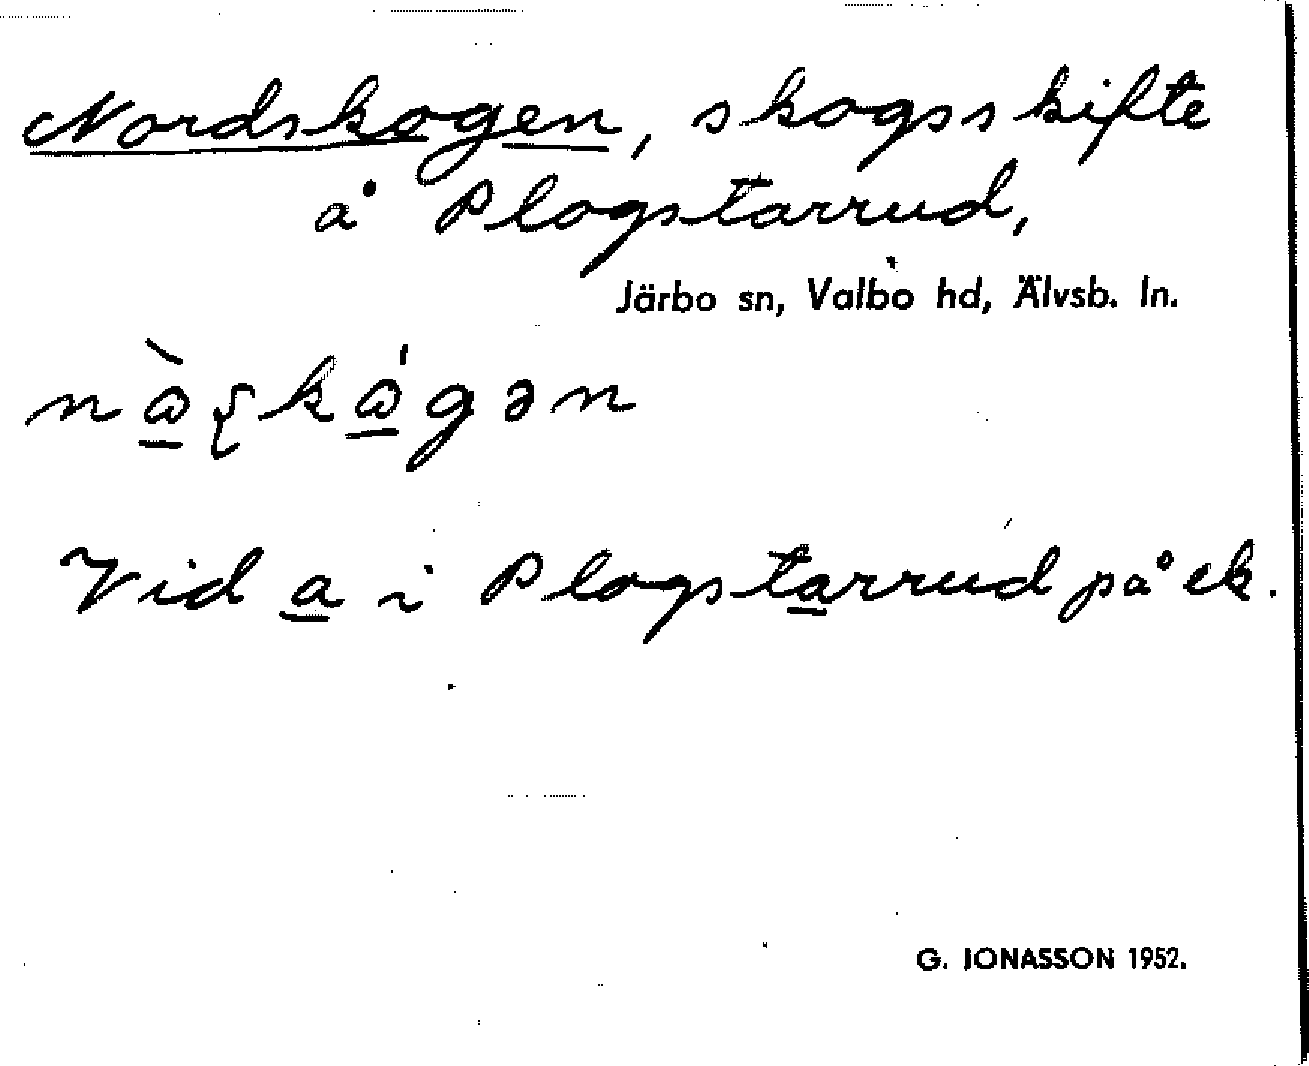 Nordskogen, skogsskifte
å Plogstarrud,
Järbo sn, Valbo hd, Älvsb. ln.
Vid a i Plogstarrud på ek.
G. JONASSON 1952.